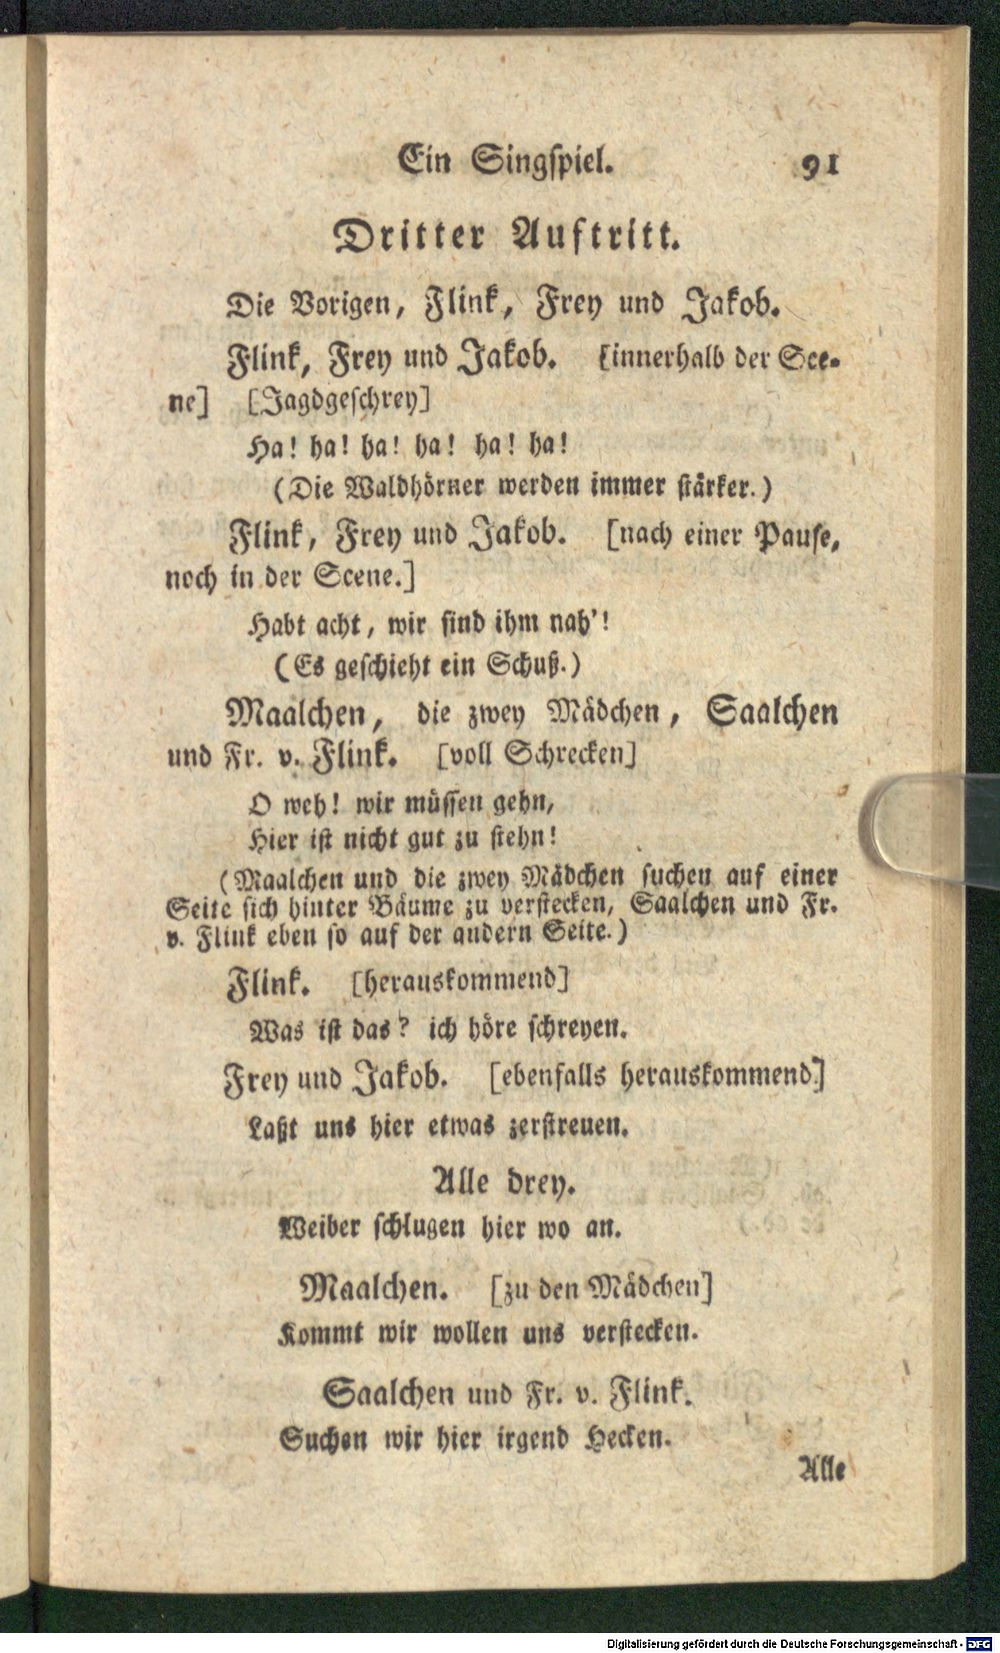 Ein Singspiel. 91
Dritter Auftritt.
Die Vorigen, Flink, Frey und Jakob.
Flink, Frey und Jakob. [innerhalb der Sce-
ne] [Jagdgeschrey]
Ha! ha! ha! ha! ha! ha!
(Die Waldhörner werden immer stärker.)
Flink, Frey und Jakob. [nach einer Pause,
noch in der Scene.]
Habt acht, wir sind ihm nah'!
(Es geschieht ein Schuß.)
Maalchen, die zwey Mädchen, Saalchen
und Fr. v. Flink. [voll Schrecken]
O weh! wir müssen gehn,
Hier ist nicht gut zu stehn!
(Maalchen und die zwey Mädchen suchen auf einer
Seite sich hinter Bäume zu verstecken, Saalchen und Fr.
v. Flink eben so auf der andern Seite.)
Flink. [herauskommend]
Was ist das? ich höre schreyen.
Frey und Jakob. [ebenfalls herauskommend.]
Laßt uns hier etwas zerstreuen.
Alle drey.
Weiber schlugen hier wo an.
Maalchen. [zu den Mädchen]
Kommt wir wollen uns verstecken.
Saalchen und Fr. v. Flink.
Suchen wir hier irgend Hecken.
Alle
Digitalisierung gefördert durch die Deutsche Forschungsgemeinschaft - DFG